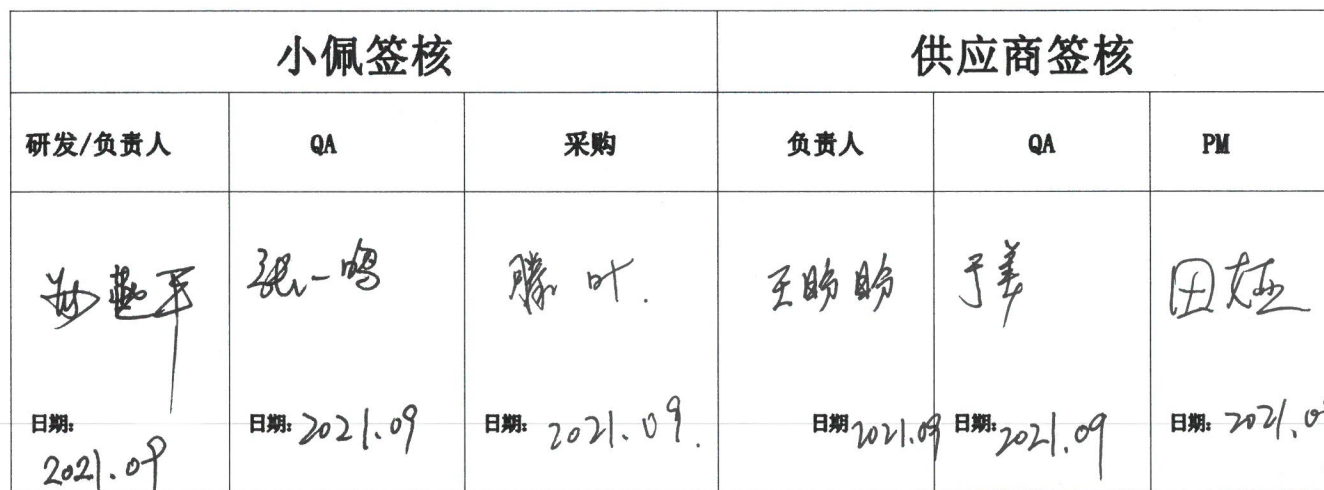 小佩签核 供应商签核
研发/负责人 QA 采购 负责人 QA PM
张一鸣 滕叶. 王盼盼 于美 田
日期: 日期: 2021.09 日期: 2021.09. 日期 2021.09 日期: 2021.09 日期: 2021.0
2021.09